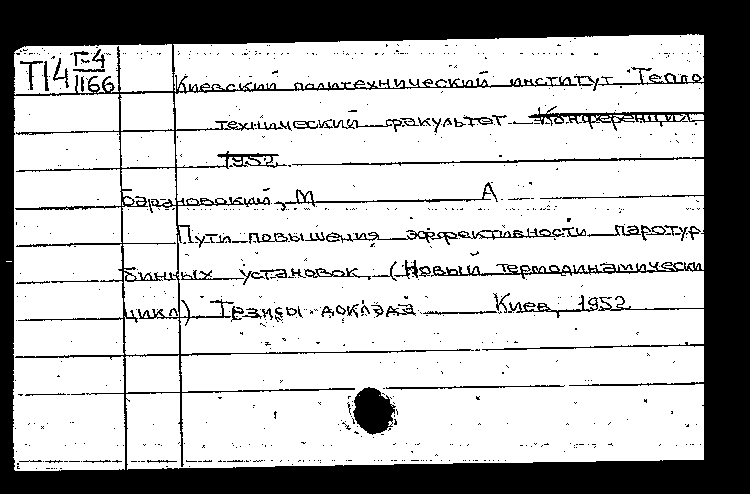 П4 Г-4
1166
Киевский политехнический институт. Тепло
технический факультет. Конференция.
1952
Барановский, М А
Пути повышения эффективности паротур
бинных установок. (Новый термодинамически
цикл). Тезисы доклада Киев, 1952